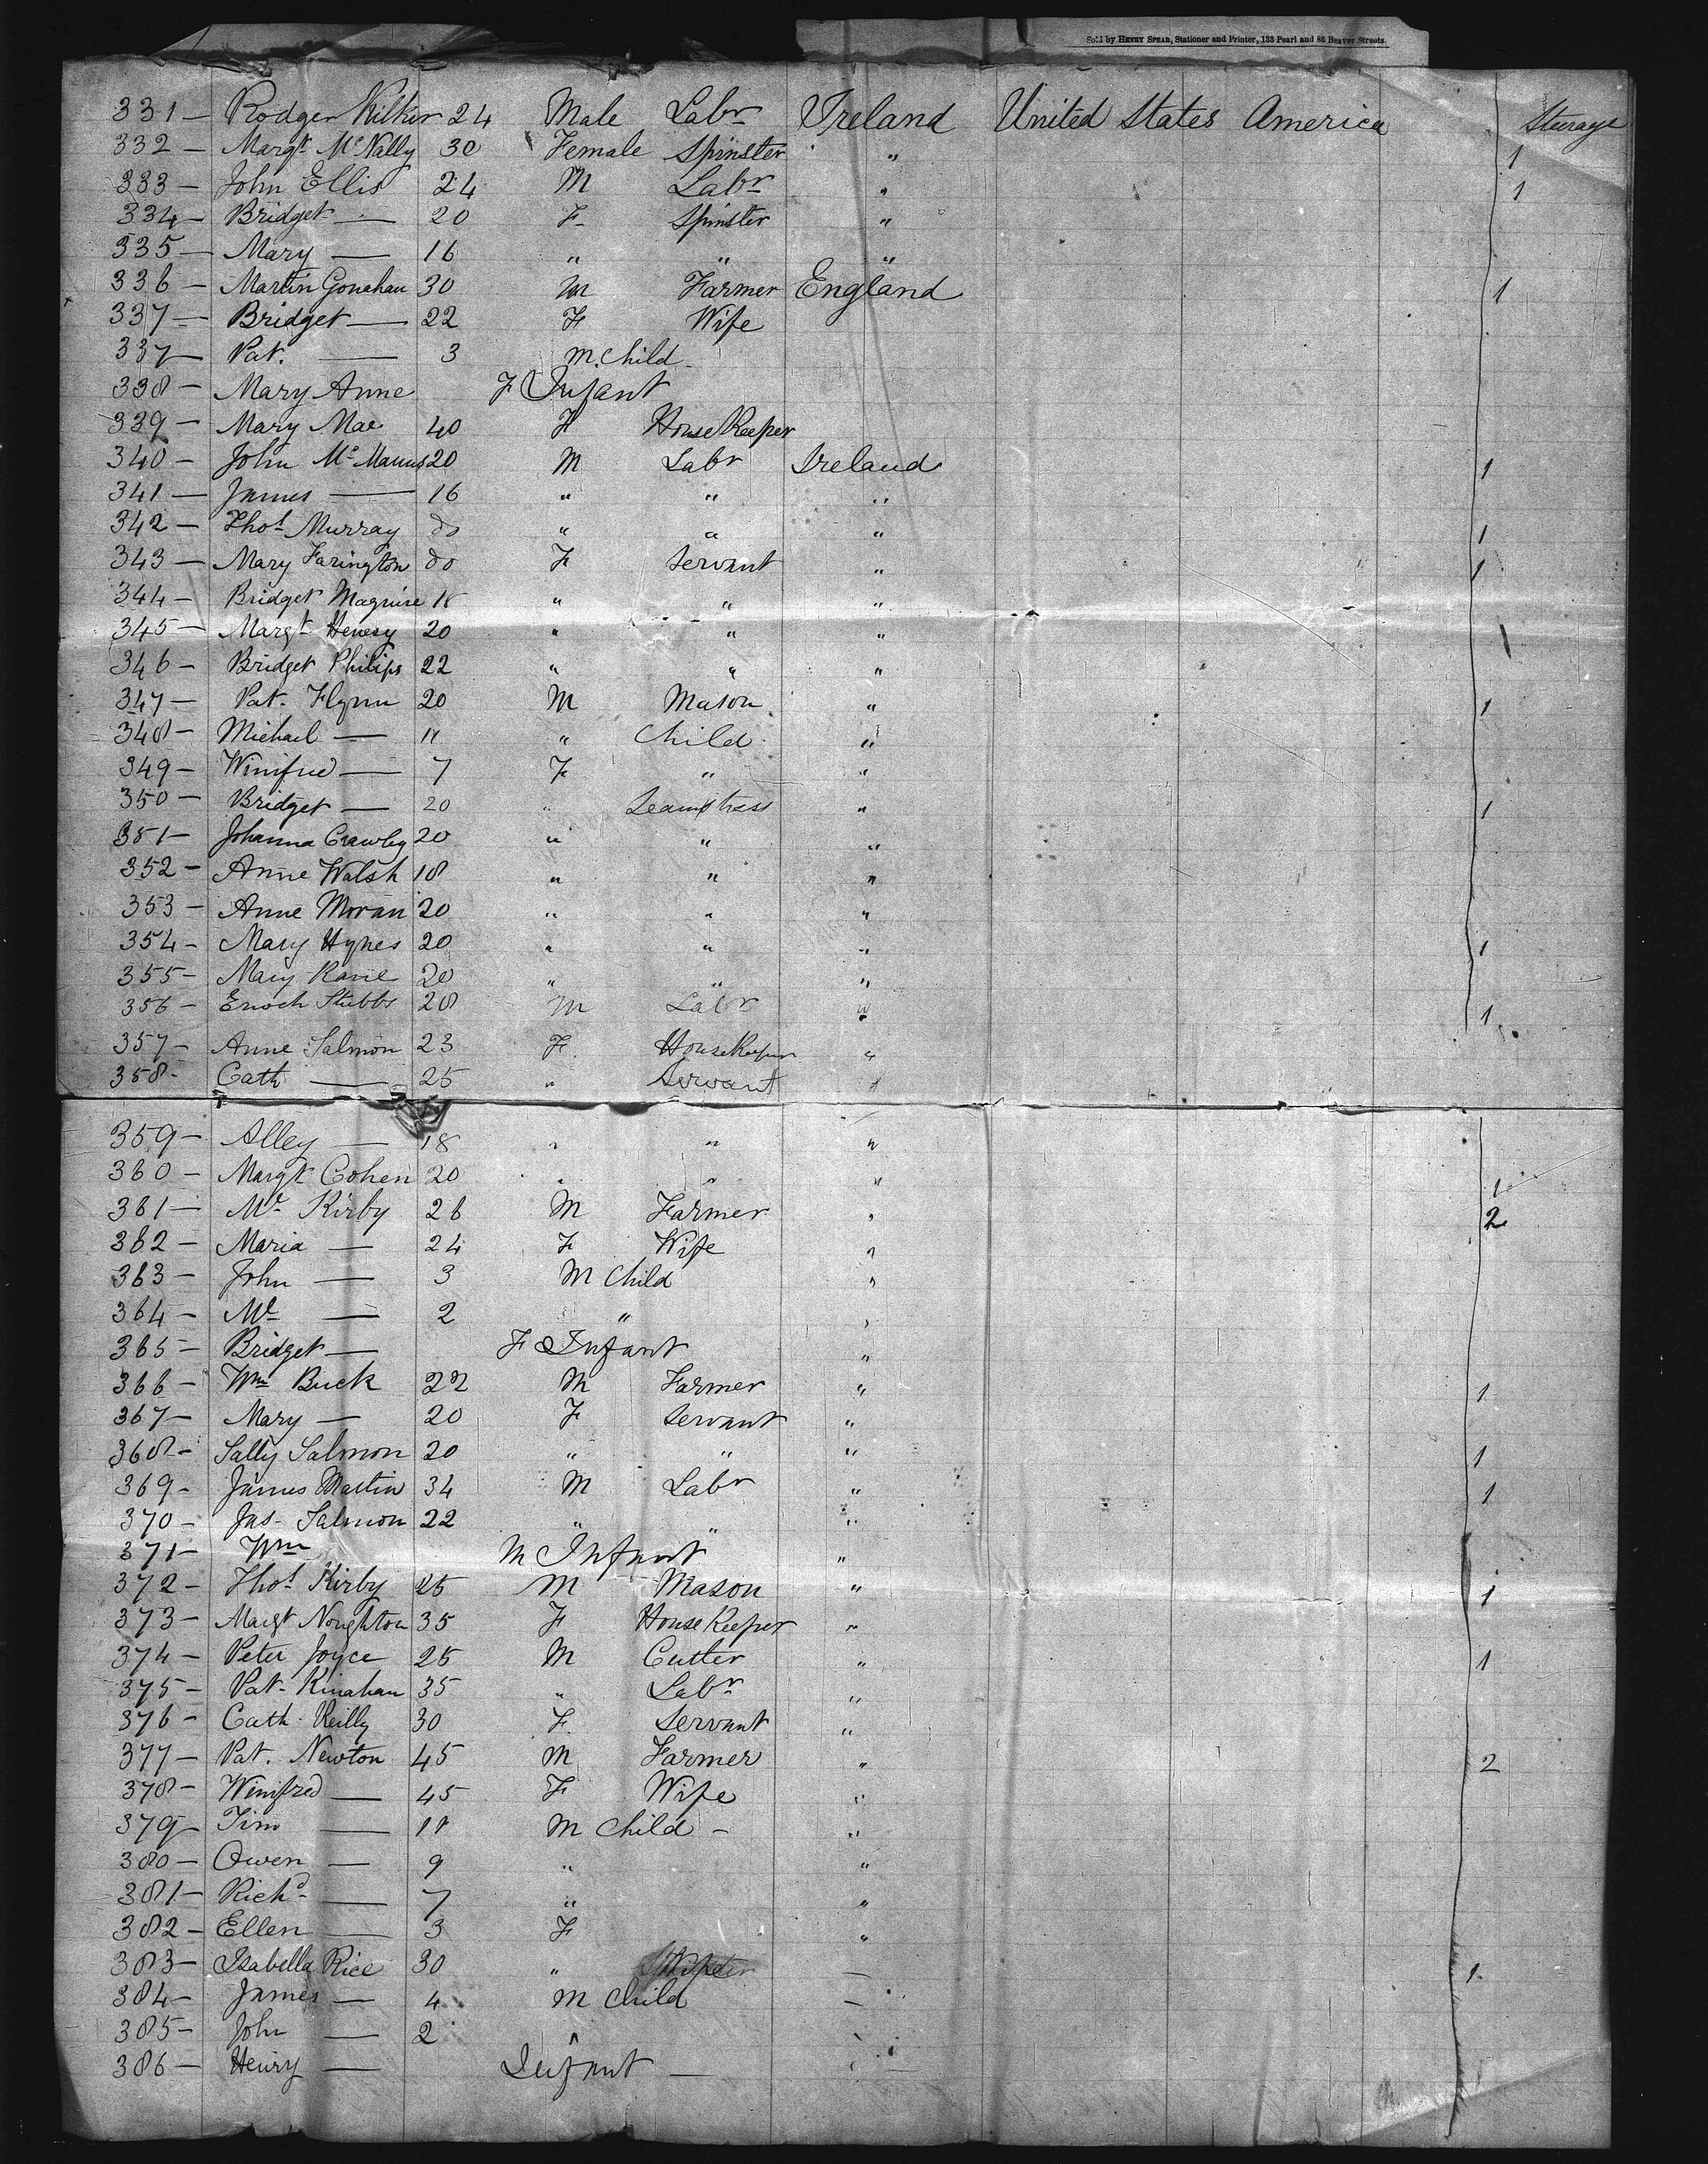 Sold by HENRY SPEAR, Stationer and Printer, 133 Pearl and 86 Beaver Streets.
331 — Rodger Kilker 24 Male Labr Ireland United States America Steerage
332 — Margt McNally 30 Female Spinster " 1
333 — John Ellis 24 M Labr " 1
334 — Bridget — 20 F Spinster "
335 — Mary — 16 " " "
336 — Martin Gonehan 30 M Farmer England 1
337 — Bridget — 22 F Wife
337 — Pat. — 3 M. Child
338 — Mary Anne F Infant
339 — Mary Mae 40 F House Keeper
340 — John McManus 20 M Labr Ireland 1
341 — James — 16 " " "
342 — Thos Murray do " " " 1
343 — Mary Farington do F Servant " 1
344 — Bridget Maguire 18 " " "
345 — Margt Henesy 20 " " "
346 — Bridget Philips 22 " " "
347 — Pat. Flynn 20 M Mason " 1
348 — Michael — 11 " Child "
349 — Winifred — 7 F " "
350 — Bridget — 20 " Seamstress " 1
351 — Johanna Crawley 20 " " "
352 — Anne Walsh 18 " " "
353 — Anne Moran 20 " " "
354 — Mary Hynes 20 " " " 1
355 — Mary Kane 20 " " "
356 — Enoch Stubbs 28 M Labr " 1
357 — Anne Salmon 23 F House Keeper "
358 - Cath — 25 " Servant "
359 — Alley — 18 " " "
360 — Margt Cohen 20 " " " 1
361 — Ml Kirby 26 M Farmer " 2
362 — Maria — 24 F Wife "
363 — John — 3 M Child "
364 — Ml — 2 " "
365 — Bridget — F Infant "
366 — Wm Buck 22 M Farmer " 1
367 — Mary — 20 F Servant "
368 — Sally Salmon 20 " " " 1
369 - James Martin 34 M Labr " 1
370 — Jas - Salmon 22 " " "
371 — Wm M Infant "
372 — Thos Kirby 25 M Mason " 1
373 — Margt Noughton 35 F House Keeper "
374 — Peter Joyce 25 M Cutter " 1
375 — Pat - Kinahan 35 " Labr "
376 — Cath - Reilly 30 F Servant "
377 — Pat. Newton 45 M Farmer " 2
378 — Winifred — 45 F Wife "
379 — Tim — 11 M Child — "
380 — Owen — 9 " "
381 — Richd — 7 " "
382 — Ellen — 3 F "
383 — Isabella Rice 30 " — 1
384 — James — 4 M Child —
385 — John — 2 "
386 — Henry — Infant —